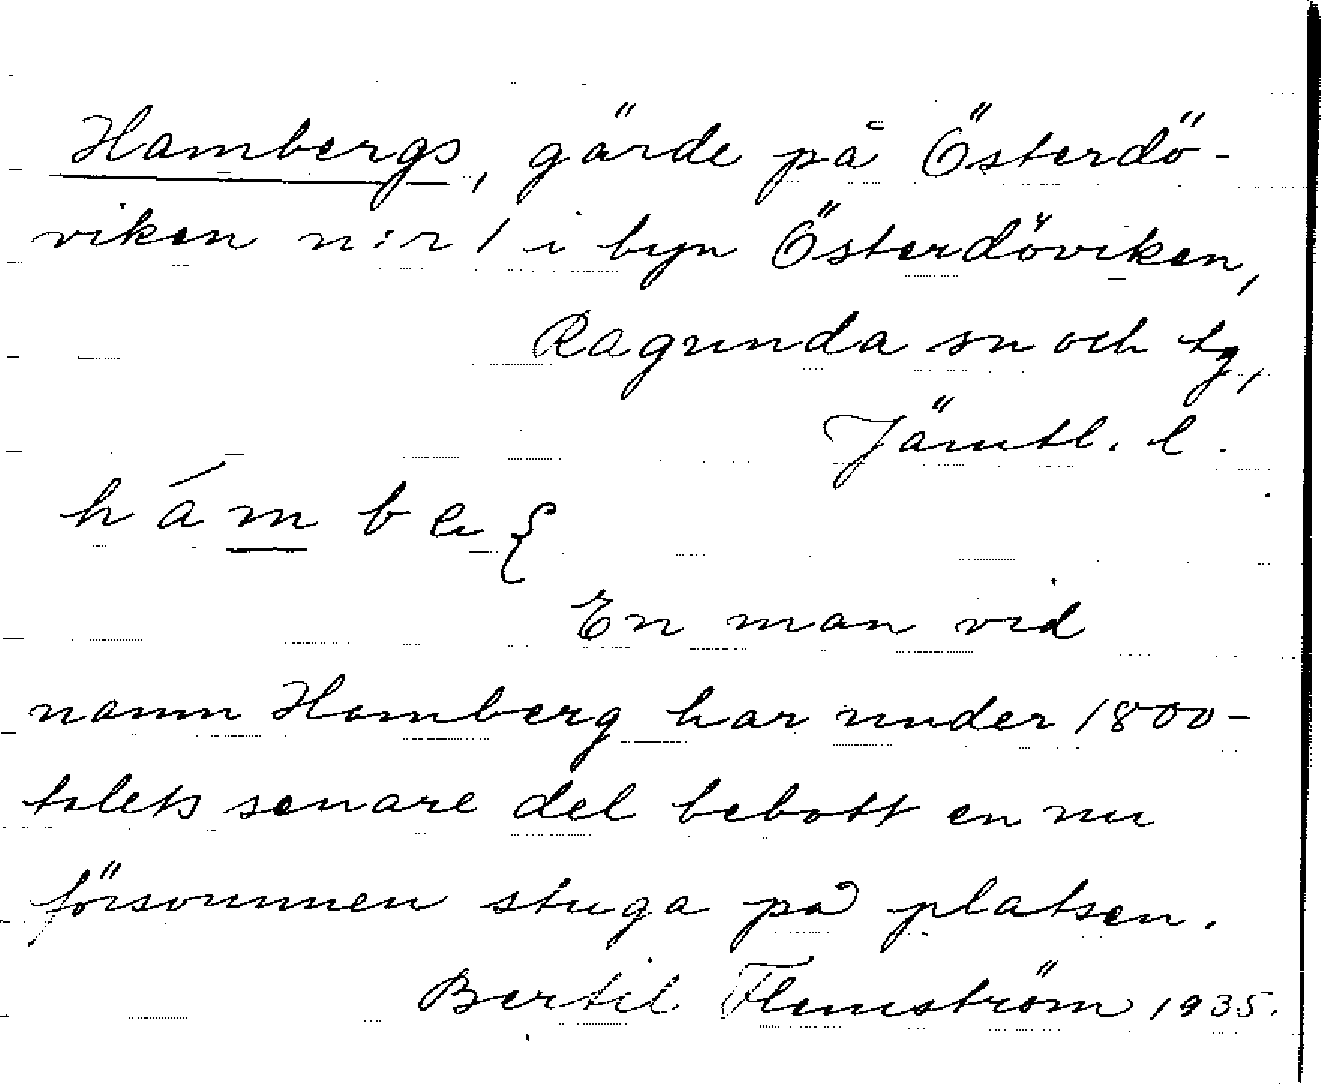 Hambergs, gärde på Österdö-
viken n:r 1 i byn Österdöviken,
Ragunda sn och tg,
Jämtl. l.
hámbeξ
En man vid
namn Hamberg har under 1800-
talets senare del bebott en nu
försvunnen stuga på platsen.
Bertil Flemström 1935.